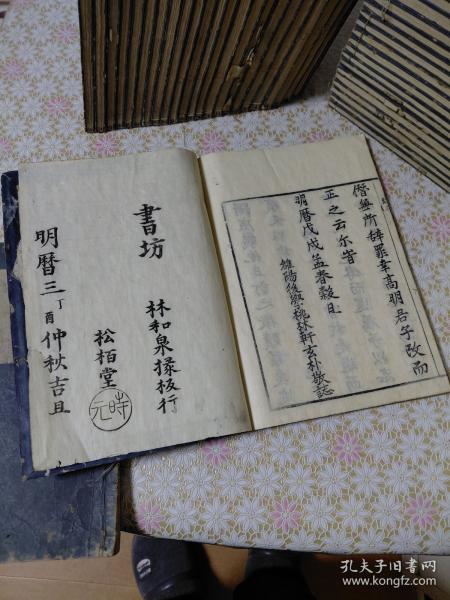 僭無所辞罪幸高明君子改而
正之云尓皆
明暦戊戌孟春穀旦
雒陽後學桃林軒玄朴敬誌
書坊
林和泉掾板行
松栢堂
時元
明暦三丁酉仲秋吉旦
孔夫子旧书网
www.kongfz.com